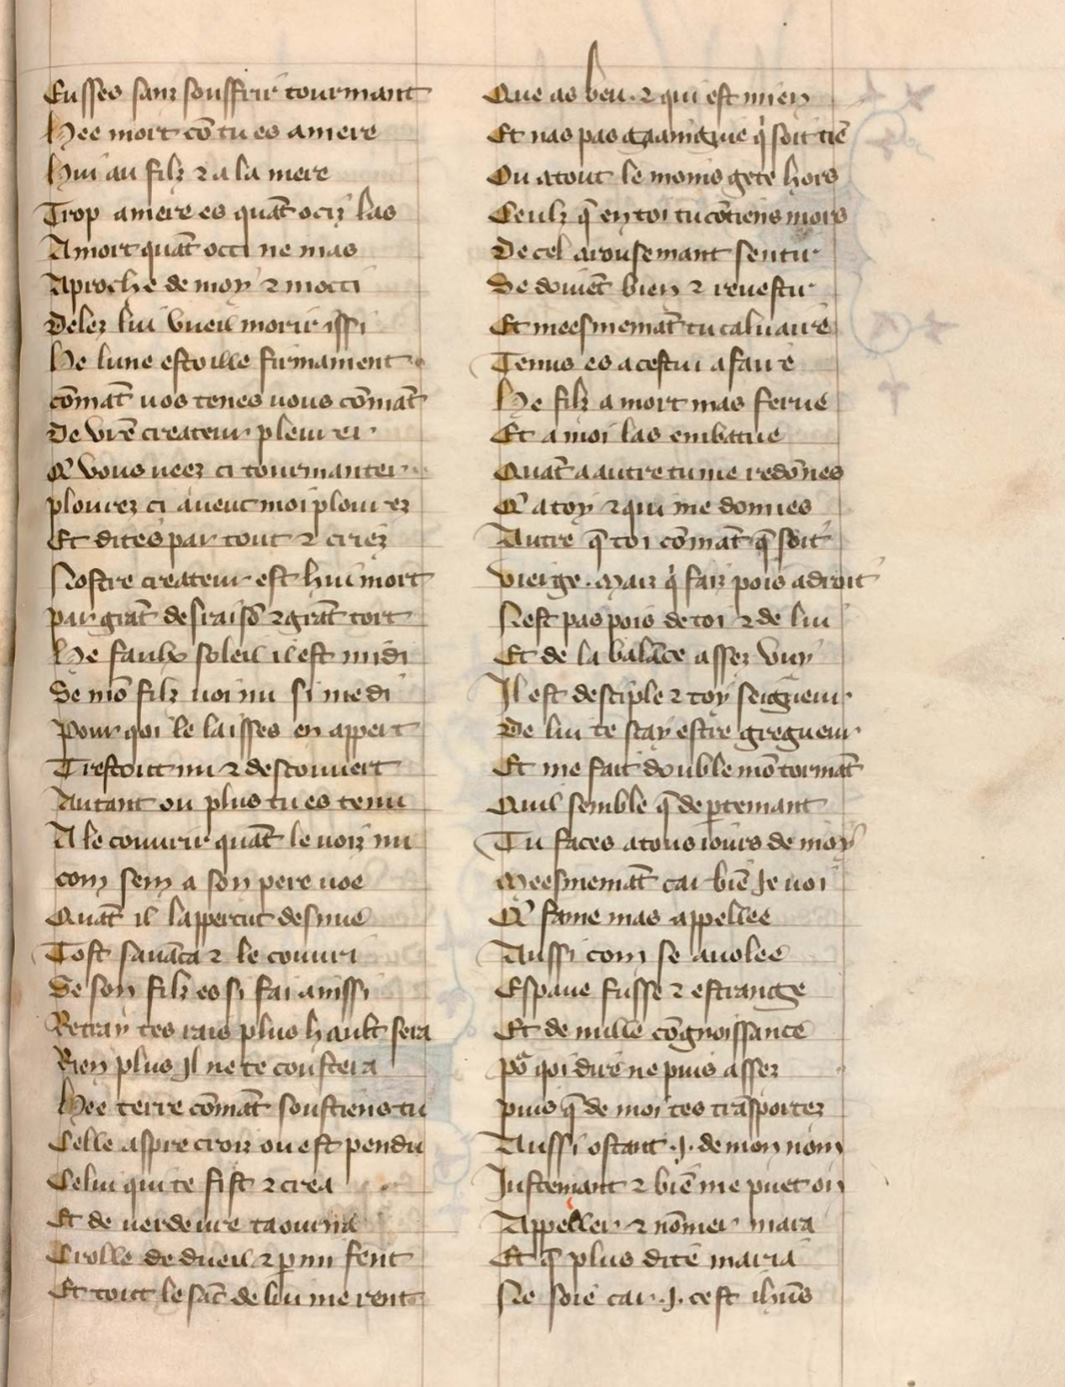 Eusses sanz souffrir tourmant
Hee mort cõ tu es amere
Hui au filz ⁊ a la mere
Trop amere es quãt ociz las
A mort quãt occi ne mas
Aproche de moy ⁊ mocci
Delez lui vueil morir issi
He lune estoille firmament
cõmãt vos tenes vous cõmãt
De vrẽ createur pleurer
Q̃ vous veez ci tourmanter
plourez ci aveuc moi plourez
Et dites par tout ⁊ criez
Nostre createur est hui mort
par grãt desraisõ ⁊ grãt tort
He faulx soleil il est midi
Se mõ filz voi nu si me di
Pour qoi le laisses en appert
Trestout nu ⁊ descouvert
Autant ou plus tu es tenu
A le couvrir quãt le voiz nu
com sem a son pere noe
Quãt il lappercut desnue
Tost savãca ⁊ le couvri
Se son filz es si fai aussi
Retray tes rais plus hault sera
Rien plus Il ne te coustera
Hee terre cõmãt soustiens tu
Celle aspre croiz ou est pendu
Celui qui te fist ⁊ crea
Et de verdeure taourna
Crolle de dueil ⁊ p̱ mi fent
Et tout le sãc de lui me rent
Que as beu ⁊ qui est mien
Et nas pas gaaingnie q̇ soit tiẽ
Ou atout le moins gete hors
Ceulz q̃ en toi tu cõtiens mors
De cel arousemant sentir
Se doivẽt bien ⁊ revestir
Et meesmemãt tu calvaire
Tenus es a cestui afaire
He filz a mort mas ferue
Et a moi las embatue
Quãt a autre tu me redõnes
Q̃ a toy ⁊ qui me donnes
Autre q̃ toi cõmãt q̃ soit
vierge. Maiz q̇ faiz pois a droit
Nest pas pois de toi ⁊ de lui
Et de la balãce assez vuy
Il est desciple ⁊ toy seigneur
De lui te scay estre gregneur
Et me fait double mõ tormãt
Quil semble q̃ dep̱temant
Tu faces a tous iours de moy
Meesmemãt car biẽ Je voi
Q̃ fame mas appellee
Aussi com se avolee
Espave fusse ⁊ estrange
Et de nulle cõgnoissance
põ qoi dire ne puis assez
puis q̃ de moi tes trãsportez
Aussi ostant .J. de mon nom
Justemant ⁊ biẽ me puet on
Appeller ⁊ nõmer mara
Et q̃ plus dite maria
Ne soie car .J. cest ihũs